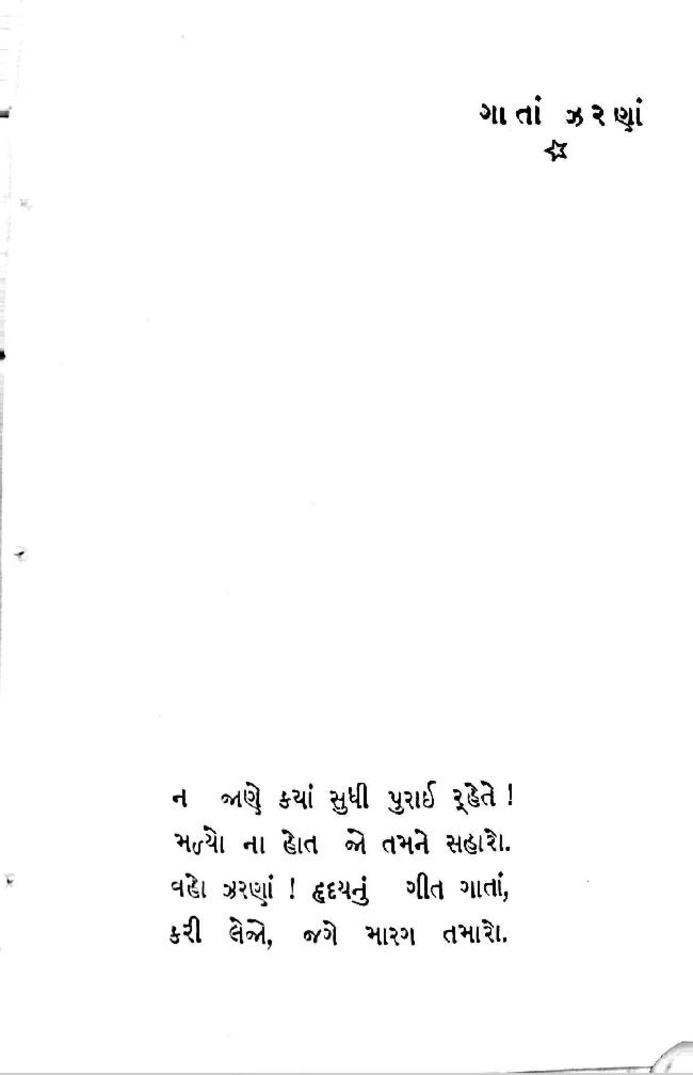 ગાતાં ઝરણાં
ન જાણે કયાં સુધી પુરાઈ ર્‌હેતે !
મળ્યો ના હોત જો તમને સહારો.
વહો ઝરણાં ! હૃદયનું ગીત ગાતાં,
કરી લેજો, જગે મારગ તમારો.